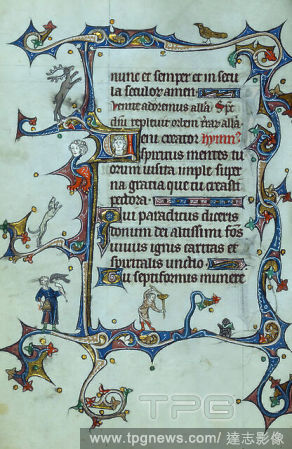 nunc et semper et in secu
la seculor amen.
Venite adoremus alla. Spc
dni repleuit orbem trar. alla.
Veni creator hymn?
spiritus mentes tu
orum uisita imple super
na gracia que tu creasti
pectora.
Qui paraclitus diceris
donum dei altissimi fons
uiuus ignis caritas et
spiritalis unctio.
Tu septiformis munere
TPG
www.tpgnews.com/ 達志影像